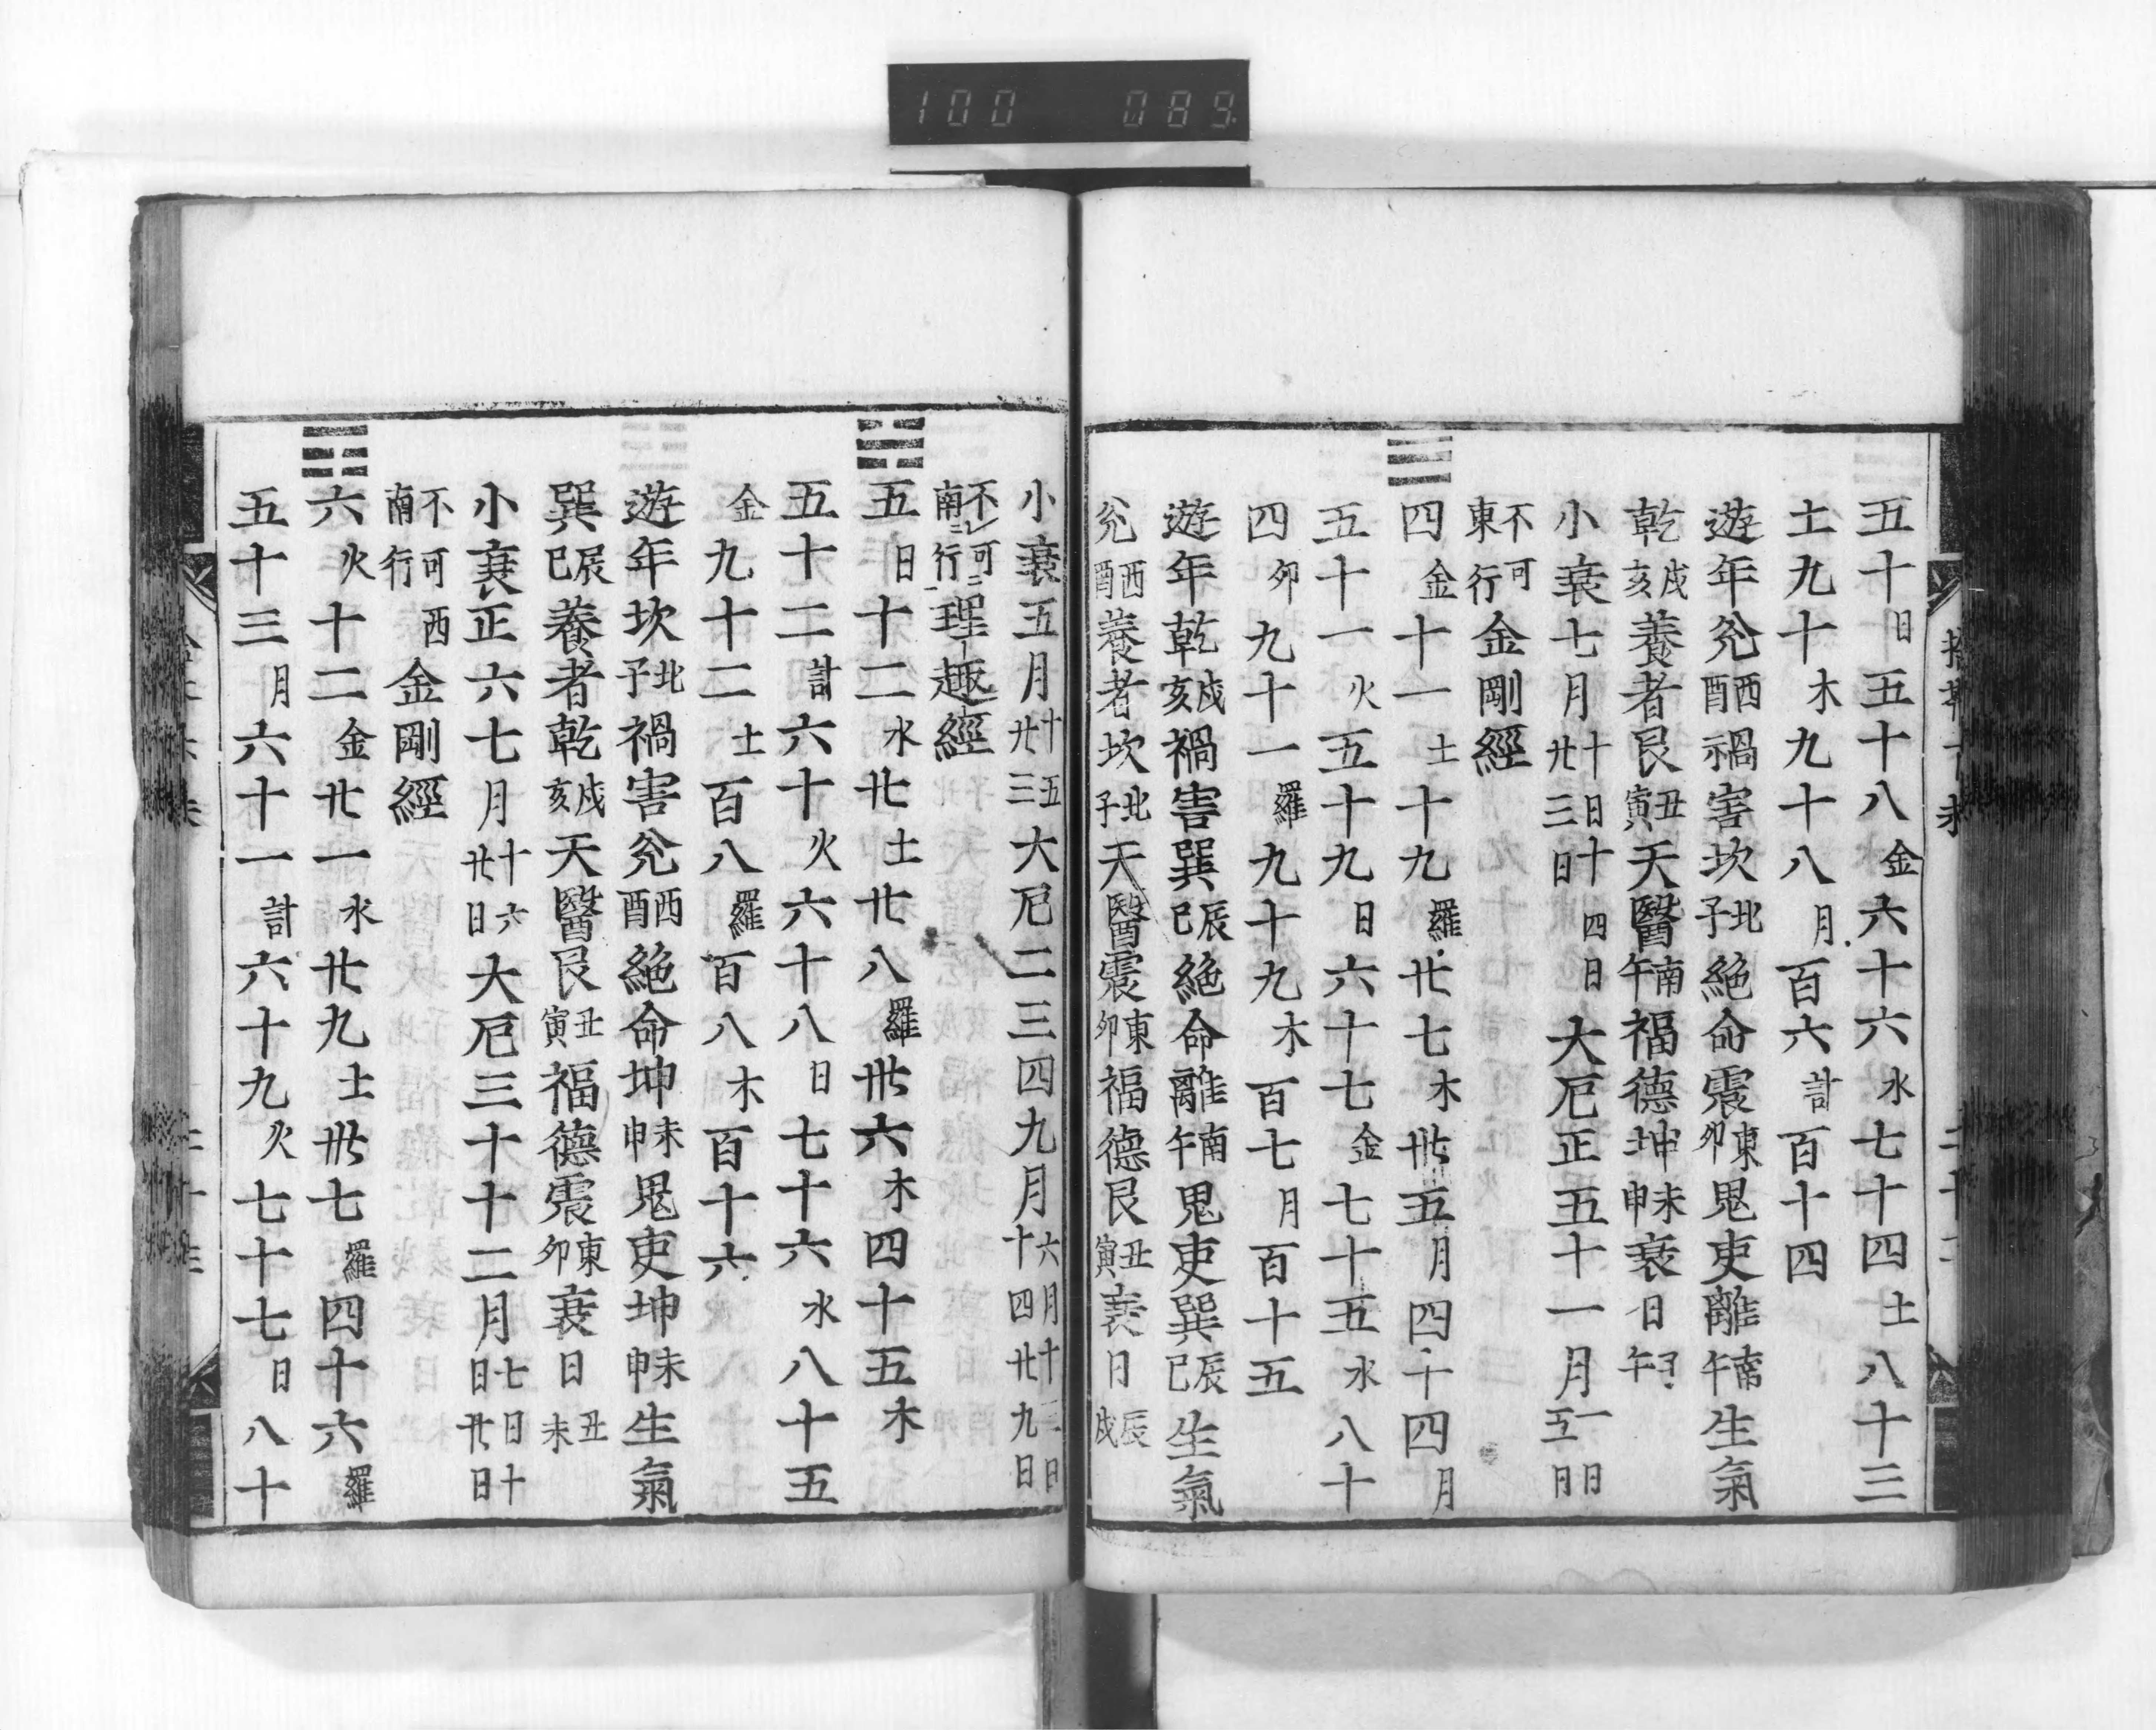 100 089
五十日五十八金六十六水七十四土八十三
土九十木九十八月百六計百十四
遊年兊西酉禍害坎北子絶命震東卯鬼吏離南午生氣
乾戌亥養者艮丑寅天醫南午福德坤未申衰日子午
小衰七月十日十四日廿三日大厄正五十一月一日
不可東行金剛經
☰四金十一土十九羅廿七木卅五月四十四月
五十一火五十九日六十七金七十五水八十
四卯九十一羅九十九木百七月百十五
遊年乾戌亥禍害巽辰巳絶命離南午鬼吏巽辰巳生氣
兊西酉養者坎北子天醫震東卯福德艮丑寅衰日辰戌
小衰五月十五廿三大厄二三四九月六月十二日十四廿九日
不可南行理趣經
☵五日十二水廿土廿八羅卅六木四十五木
五十二計六十火六十八日七十六水八十五
金九十二土百八羅百八木百十六
遊年坎北子禍害兊西酉絶命坤未申鬼吏坤未申生氣
巽辰巳養者乾戌亥天醫艮丑寅福德震東卯衰日丑未
小衰正六七月十六廿日大厄三十十二月七日十日廿日
不可西南行金剛經
☶六火十二金廿一水廿九土卅七羅四十六羅
五十三月六十一計六十九火七十七日八十